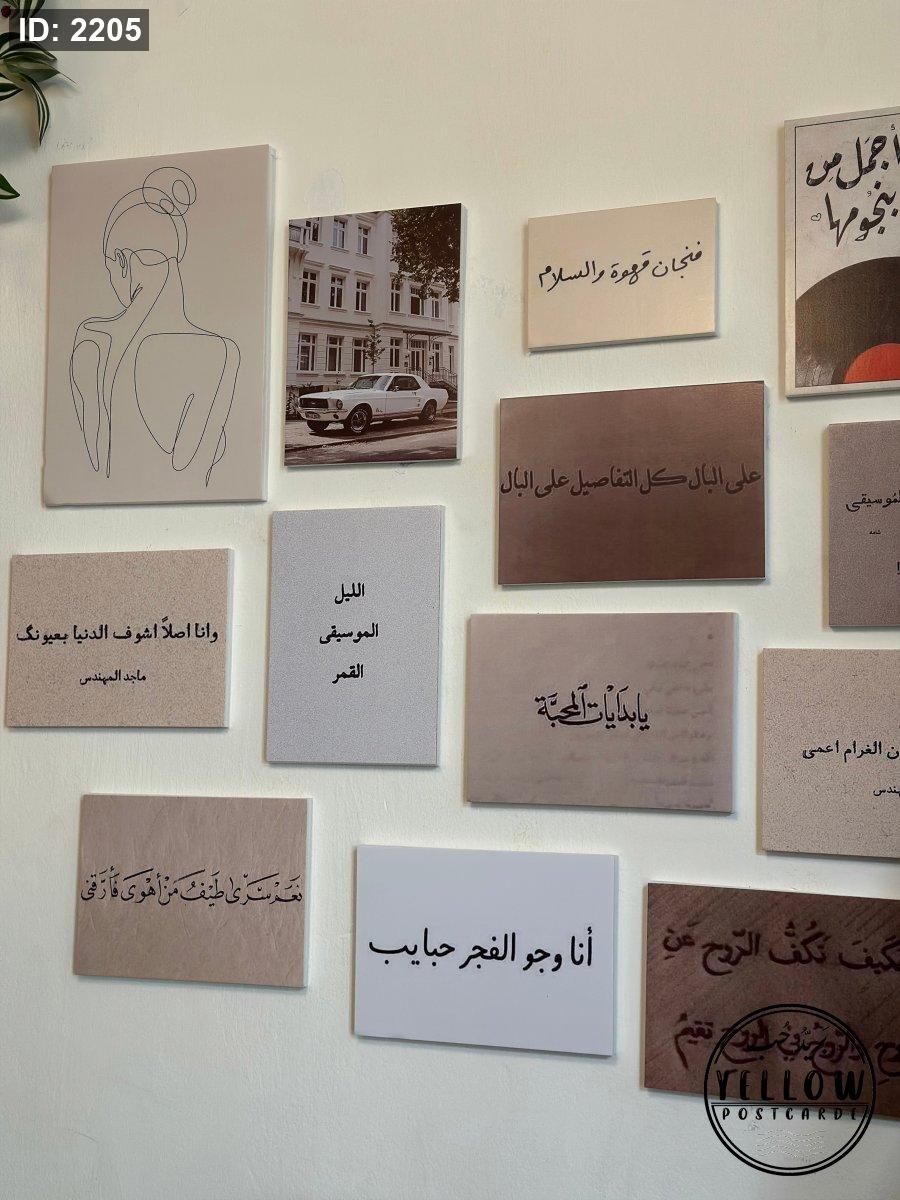 ID: 2205
أجمل من
بنجومها
فنجان قهوة والسلام
على البال كل التفاصيل على البال
الموسيقى
وانا اصلاً اشوف الدنيا بعيونگ
ماجد المهندس
الليل
الموسيقى
القمر
يابدَايَات ٱلمحبَّة
الغرام اعمى
نَعَمْ سَرَىٰ طَيْفُ مَنْ أَهْوَى فَأَرَّقَنِي
أنا وجو الفجر حبايب
فكيفَ نَكُفُّ الرّوح عَنِ
تقيمُ
YELLOW
POSTCARDE